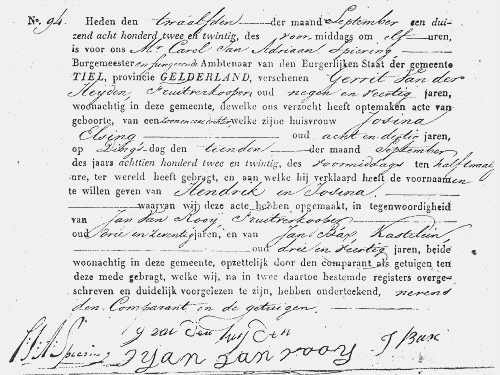 No. 94. Heden den twaalfden der maand September een dui-
zend acht honderd twee en twintig, des voor middags om elf uren,
is voor ons Mr. Carel Jan Adriaan Spiering
Burgemeester en fungeerende Ambtenaar van den Burgerlijken Staat der gemeente
TIEL, provincie GELDERLAND, verschenen Gerrit Van der
Heyden Fruitverkooper oud negen en veertig jaren,
woonachtig in deze gemeente, dewelke ons verzocht heeft optemaken acte van
geboorte, van een zoon en een dochter welke zijne huisvrouw Josina
Elsing oud acht en dertig jaren,
op Dings dag den tienden der maand September
des jaars achttien honderd twee en twintig, des voormiddags ten half twaal
ure, ter wereld heeft gebragt, en aan welke hij verklaard heeft de voornaamen
te willen geven van Hendrik en Josina.
waarvan wij deze acte hebben opgemaakt, in tegenwoordigheid
van Jan Van Rooy Fruitverkooper
oud drie en zeventig jaren, en van Jan Bax Kastelein
oud drie en veertig jaren, beide
woonachtig in deze gemeente, opzettelijk door den comparant als getuigen ten
deze mede gebragt, welke wij, na in twee daartoe bestemde registers overge-
schreven en duidelijk voorgelezen te zijn, hebben onderteekend, nevens
den Comparant en de getuigen.
g van der heyden J Bax
C.J.A. Spiering Jan van rooy